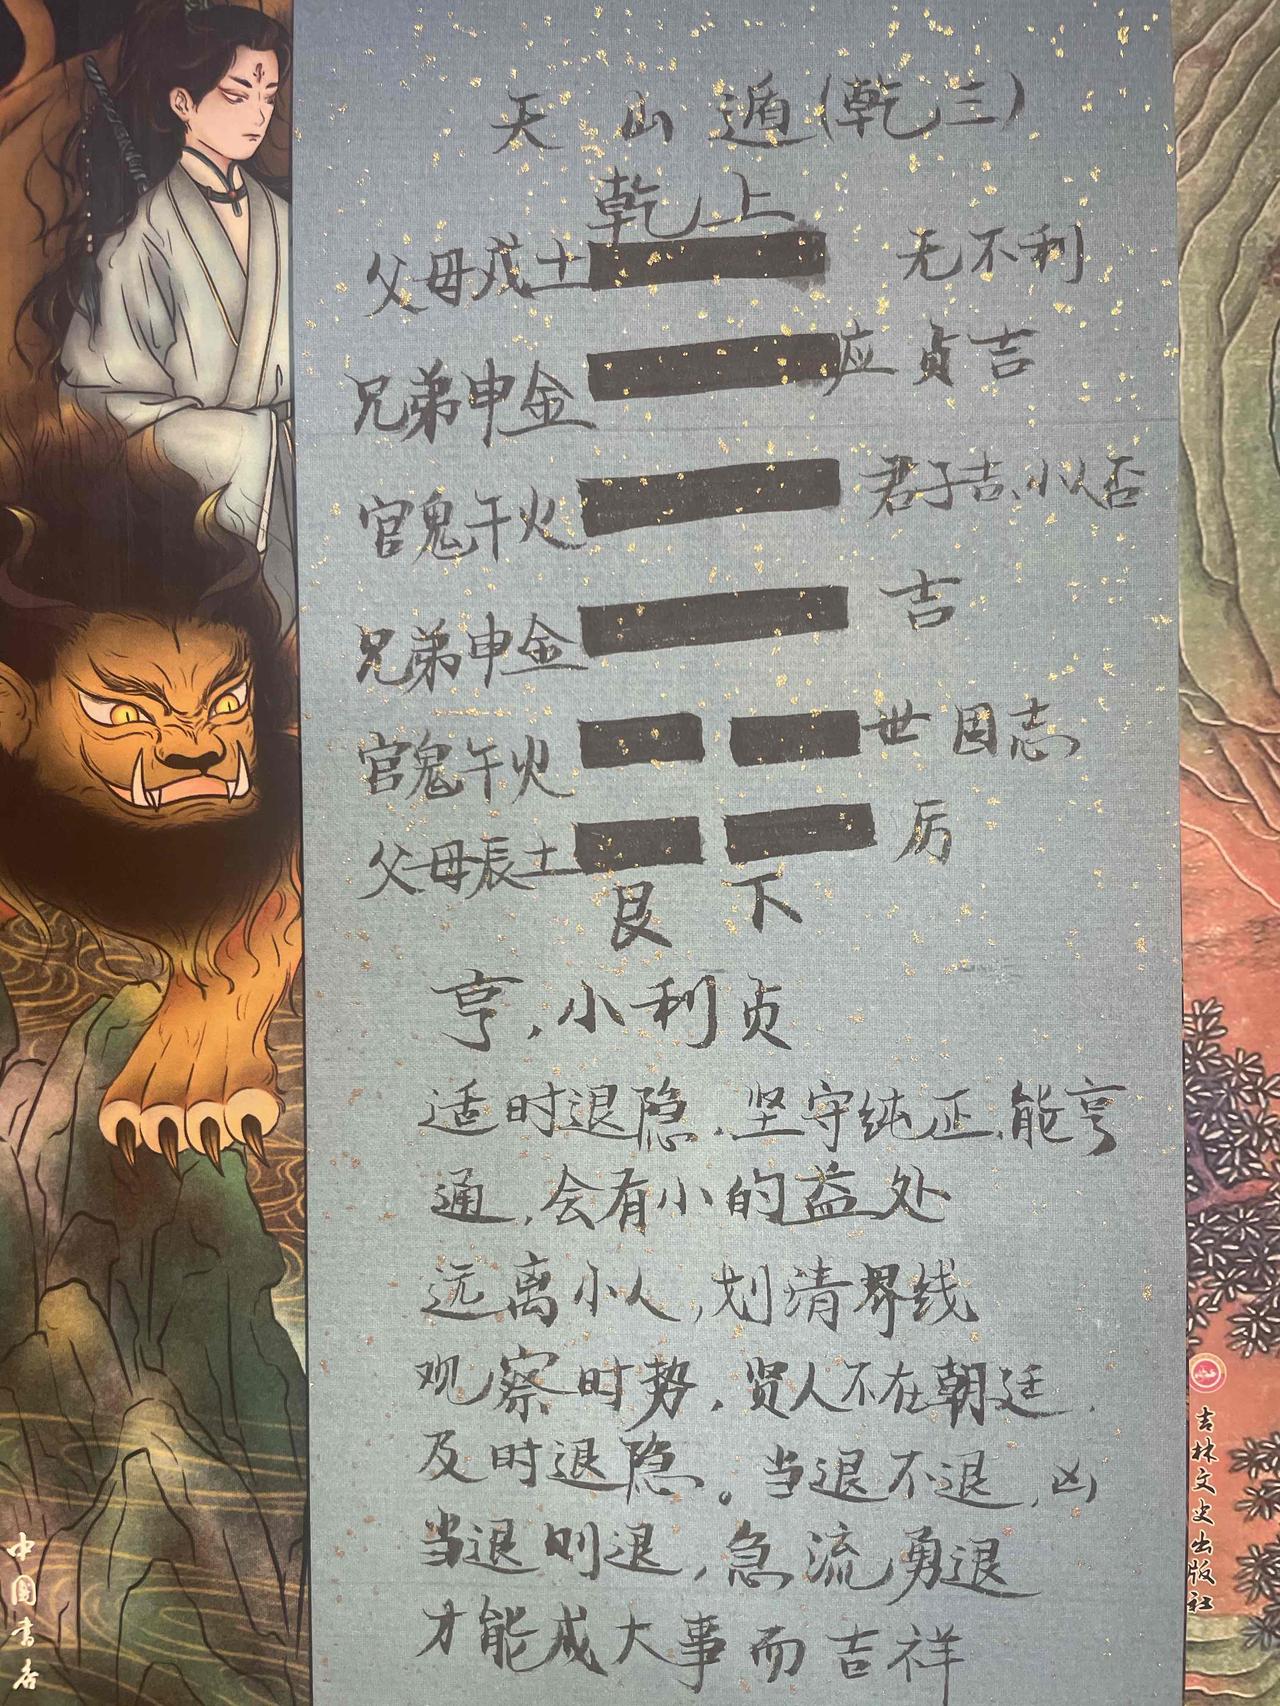 天山遁(乾三)
乾上
父母戌土 无不利
兄弟申金 应贞吉
官鬼午火 君子吉、小人否
兄弟申金 吉
官鬼午火 世固志
父母辰土 厉
艮下
亨,小利贞
适时退隐,坚守纯正,能亨
通,会有小的益处
远离小人,划清界线
观察时势,贤人不在朝廷,
及时退隐。当退不退,凶
当退则退,急流勇退
才能成大事而吉祥
中国书店
吉林文史出版社